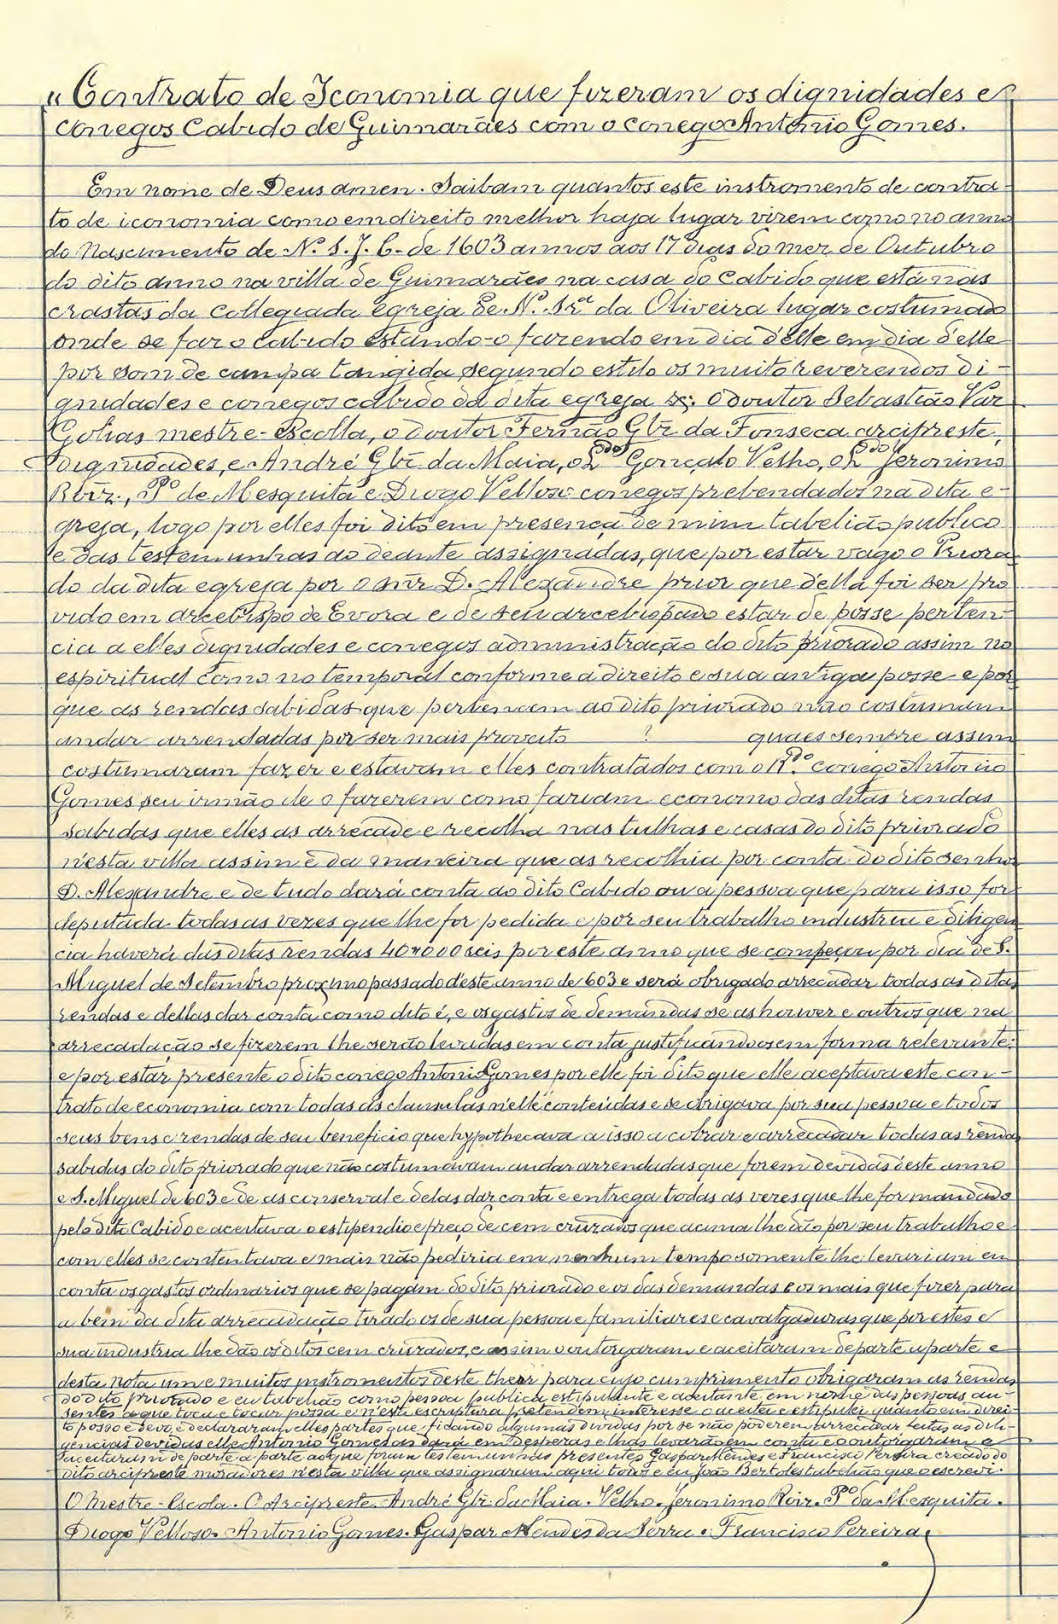 "Contrato de Iconomia que fizeram os dignidades e
conegos Cabido de Guimarães com o conego Antonio Gomes.
Em nome de Deus amen. Saibam quantos este instromento de contra-
to de iconomia como em direito melhor haja lugar virem como no anno
do Nascimento de N. S. J. C. de 1603 annos aos 17 dias do mez de Outubro
do dito anno na villa de Guimarães na casa do Cabido que está nas
crastas da Collegiada egreja de N. Srª da Oliveira lugar costumado
onde se faz o cabido estando-o fazendo em dia d'elle em dia d'elle
por som de campa tangida segundo estilo os muito reverendos di-
gnidades e conegos cabido da dita egreja s; o doutor Sebastião Vaz
Golias mestre-Escolla, o doutor Fernão Glz da Fonseca arcipreste,
dignidades, e André Glz da Maia, o Ldo Gonçalo Velho, o Ldo Jeronimo
Roiz, Pº de Mesquita e Diogo Velloso conegos prebendados na dita e-
greja, logo por elles foi dito em presença de mim tabelião publico
e das testemunhas ao deante assignadas, que por estar vago o Priora
do da dita egreja por o snr D. Alexandre prior que della foi ser pro
vido em arcebispo de Evora e de seu arcebispado estar de posse perten-
cia a elles dignidades e conegos administração do dito priorado assim no
espiritual como no temporal conforme a direito e sua antiga posse e por
que as rendas sabidas que pertencem ao dito priorado não costumam
andar arrendadas por ser mais proveito ? quaes sempre assim
costumaram fazer e estavam elles contratados com o R.do conego Antonio
Gomes seu irmão de o fazerem como faziam economo das ditas rendas
sabidas que elles as arrecade e recolha nas tulhas e casas do dito priorado
n'esta villa assim e da maneira que as recolhia por conta do dito senhor
D. Alexandre e de tudo dará conta ao dito Cabido ou a pessoa que para isso for
deputada todas as vezes que lhe for pedida e por seu trabalho industria e diligen
cia haverá das ditas rendas 40$000 reis por este anno que se começou por dia de S.
Miguel de Setembro proximo passado d'este anno de 603 e será obrigado arrecadar todas as ditas
rendas e dellas dar conta como dito é, e os gastos de demandas se as houver e outros que na
arrecadação se fizerem lhe serão levadas em conta justificando-os em forma relevante:
e por estar presente o dito conego Antonio Gomes por elle foi dito que elle aceptava este con-
trato de economia com todas as clausulas n'elle conteúdas e se obrigava por sua pessoa e todos
seus bens e rendas de seu beneficio que hypothecava a isso a cobrar e arrecadar todas as rendas
sabidas do dito priorado que não costumavam andar arrendadas que forem devidas d'este anno
e S. Miguel de 603 e de as conservar e delas dar conta e entrega todas as vezes que lhe for mandado
pelo dito Cabido e aceitava o estipendio e preço de cem cruzados que acima lhe dão por seu trabalho e
com elles se contentava e mais não pediria em nenhum tempo somente lhe levariam em
conta os gastos ordinarios que se pagam do dito priorado e os das demandas e os mais que fizer para
a bem da dita arrecadação tirado os de sua pessoa e familiares e cavalgaduras que por estes e
sua industria lhe dão os ditos cem cruzados, e assim o outorgaram e aceitaram de parte a parte e
desta nota um e muitos instromentos d'este theor para cujo cumprimento obrigaram as rendas
do dito priorado e eu tabelião como pessoa publica estipulante e aceitante em nome das pessoas au-
sentes a que toca e tocar possa e n'esta escriptura pretendem interesse o aceito e estipulei quanto em direi-
to posso e devo e declararam elles partes que ficando algumas dividas por se não poderem arrecadar feitas as dili-
gencias devidas elle Antonio Gomes as dará em desperas e lhas levarão em conta e o outorgaram e
aceitaram de parte a parte ao que foram testemunhas presentes Gaspar Mendes e Francisco Pereira creado do
dito arcipreste moradores n'esta villa que assignaram aqui todos e eu João Bertoles tabelião que o escrevi.
O Mestre-Escola. O Arcipreste. André Glz da Maia. Velho. Jeronimo Roiz. Pº da Mesquita.
Diogo Velloso. Antonio Gomes. Gaspar Mendes da Serra. Francisco Pereira.